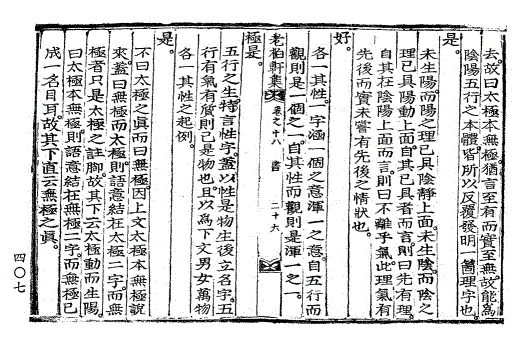 去。故曰太極本無極。猶言至有而實至無。故能爲
陰陽五行之本體。皆所以反覆發明一箇理字也。
是。
未生陽。而陽之理已具陰靜上面。未生陰。而陰之
理已具陽動上面。自其已具者而言。則曰先有理。
自其在陰陽上面而言。則曰不離乎氣。此理氣有
先後而實未嘗有先後之情狀也。
好。
各一其性。一字。涵一個之意渾一之意。自五行而
觀則是一個之一。自其性而觀則是渾一之一。
老柏軒集 卷之十八 書 二十六
極是。
五行之生。特言性字。蓋以性是物生後立名字。五
行有氣有質。則已是物也。且以爲下文男女萬物
各一其性之起例。
是。
不曰太極之眞而曰無極。因上文太極本無極說
來。蓋曰無極而太極。則語意結在太極二字。而無
極者只是太極之註脚。故其下云太極動而生陽。
曰太極本無極。則語意結在無極二字。而無極已
成一名目耳。故其下直云無極之眞。
四〇七